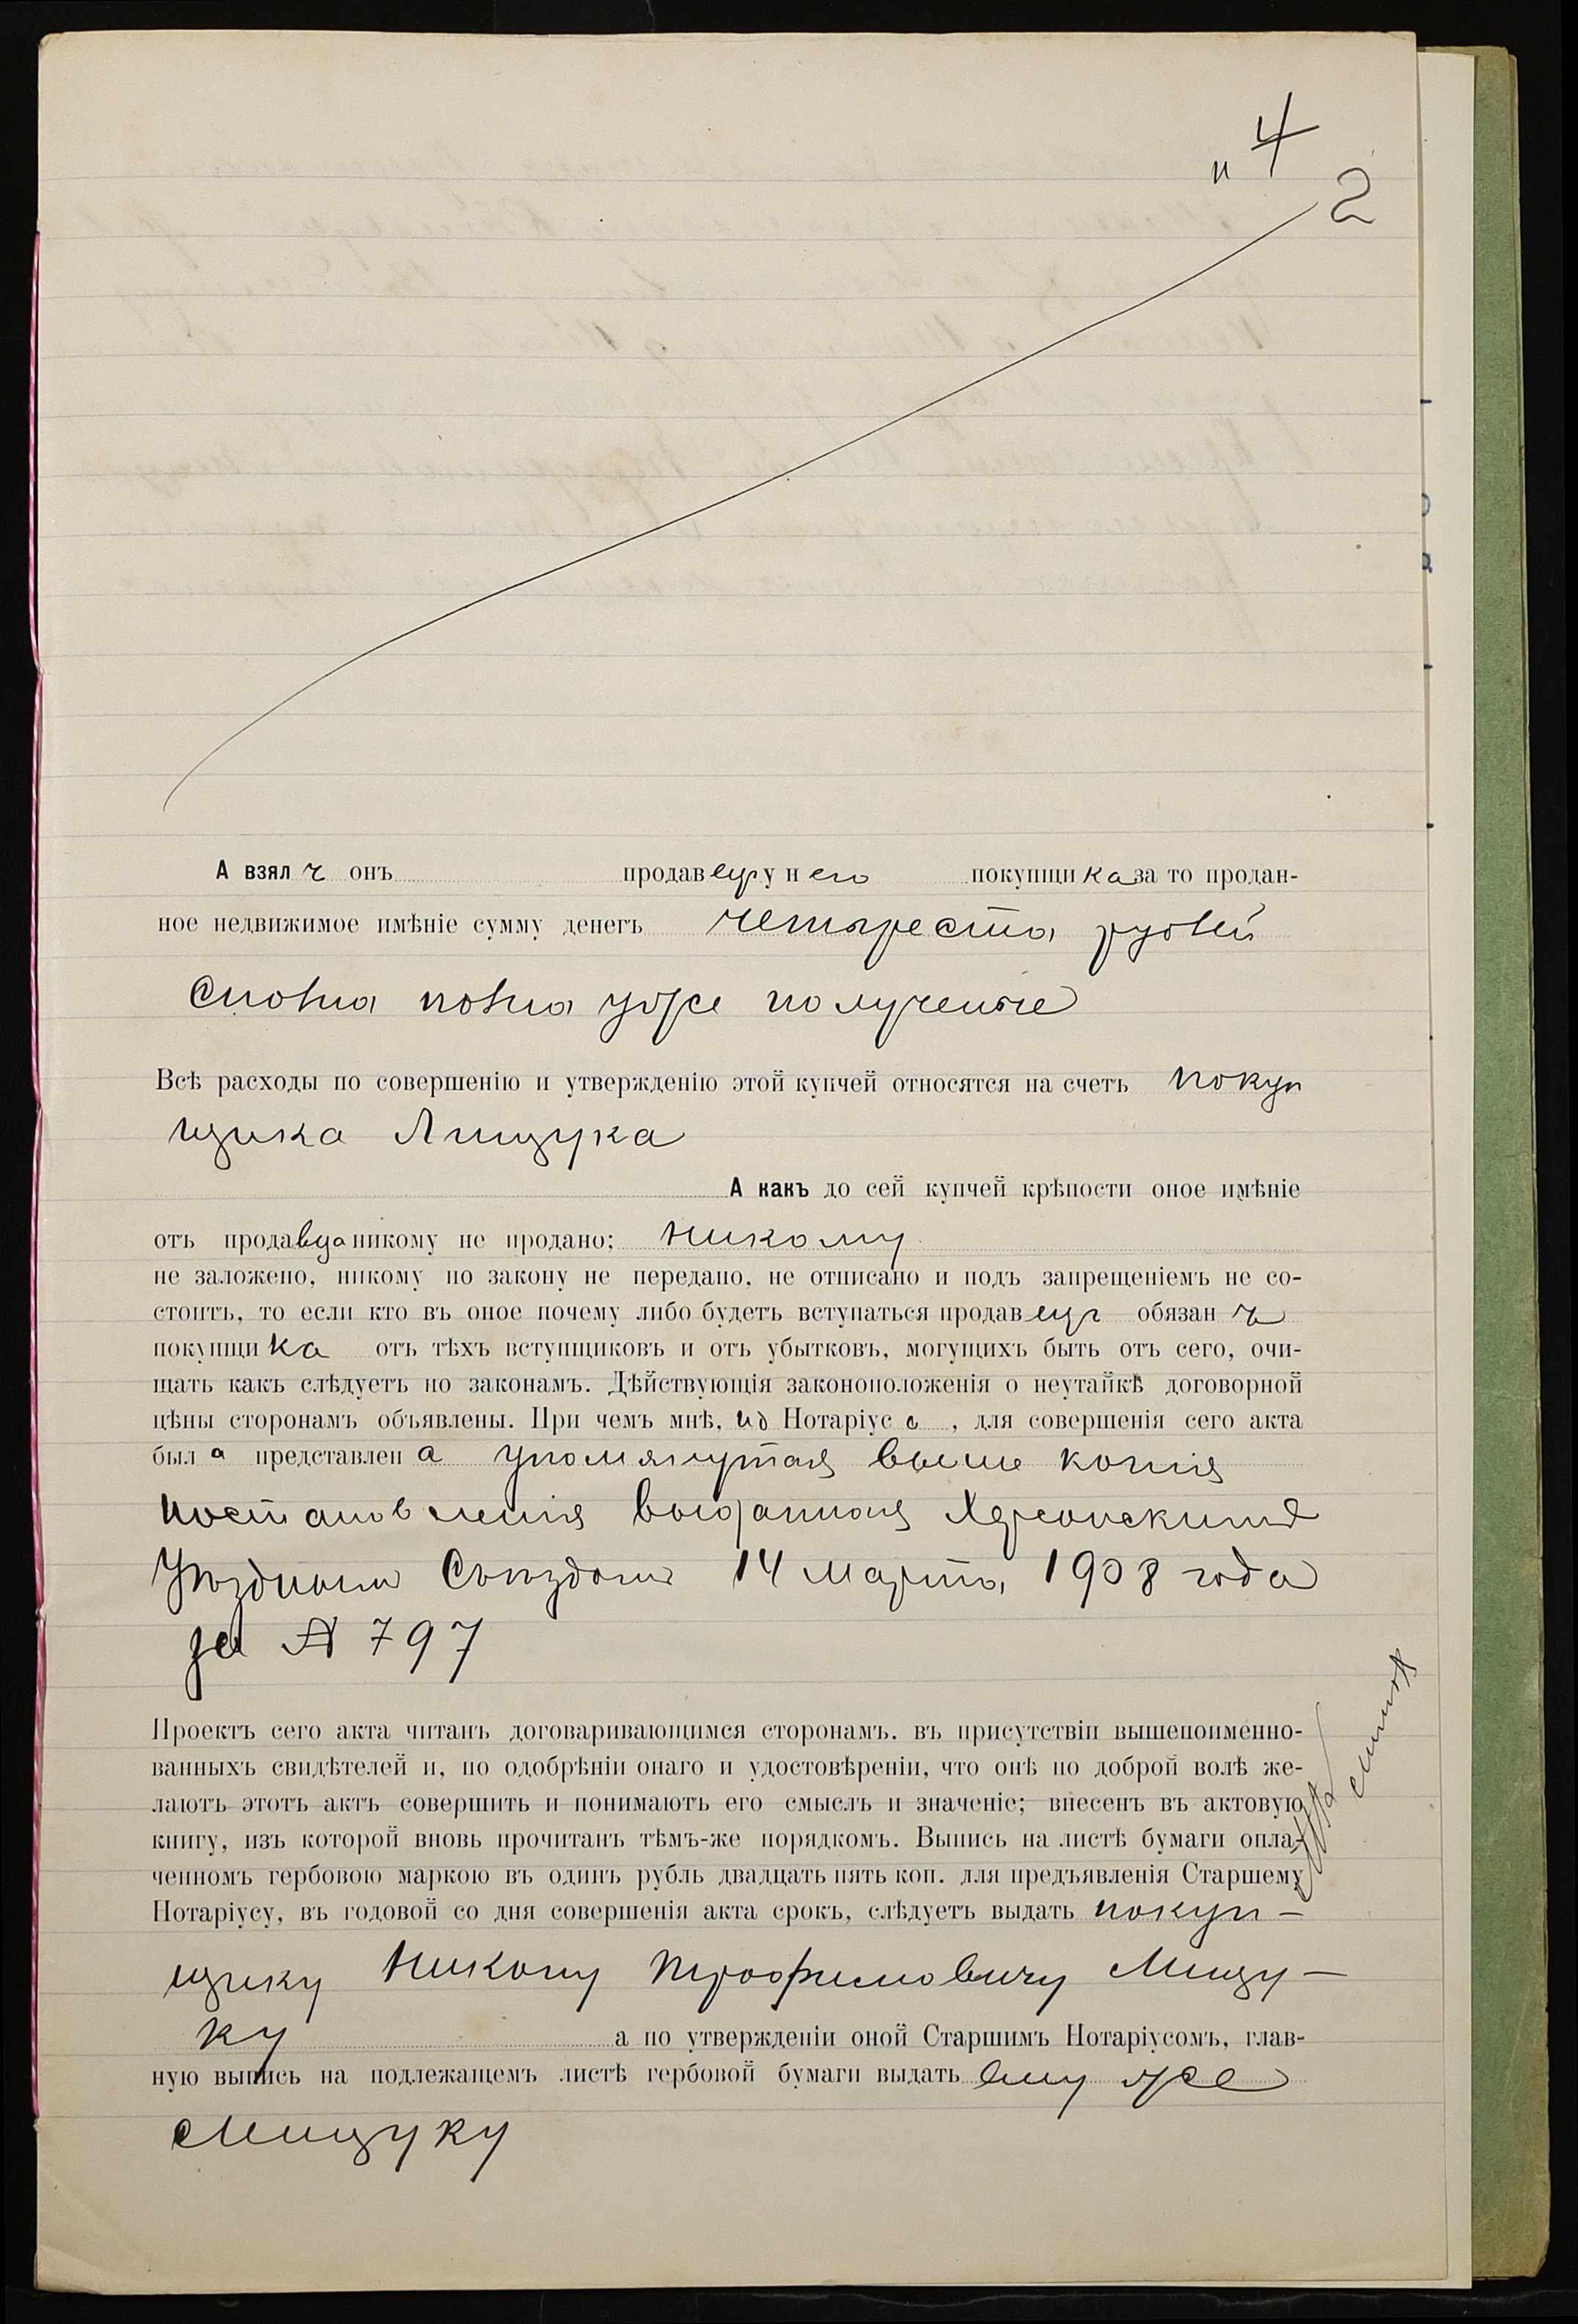 4
2
А взялъ онъ продавецъ у него покупщика за то продан-
ное недвижимое имѣніе сумму денегъ четыреста рублей
сполна уже полученые
Всѣ расходы по совершенію и утвержденію этой купчей относятся на счетъ покуп
щика Мищука
А какъ до сей купчей крѣпости оное имѣніе
отъ продавца никому не продано; никому
не заложено, никому по закону не передано, не отписано и подъ запрещеніемъ не со-
стоитъ, то если кто въ оное почему либо будетъ вступаться продавецъ обязанъ
покупщика отъ тѣхъ вступщиковъ и отъ убытковъ, могущихъ быть отъ сего, очи-
щать какъ слѣдуетъ по законамъ. Дѣйствующія законоположенія о неутайкѣ договорной
цѣны сторонамъ объявлены. При чемъ мнѣ, Нотаріус , для совершенія сего акта
была представлена упомянутая выше копія
постановленія выданная Херсонскимъ
Уѣзднымъ Съѣздомъ 14 марта 1908 года
за № 797
Проектъ сего акта читанъ договаривающимся сторонамъ. въ присутствіи вышепоименно-
ванныхъ свидѣтелей и, по одобрѣніи онаго и удостовѣреніи, что онѣ по доброй волѣ же-
лаютъ этотъ актъ совершить и понимаютъ его смыслъ и значеніе; внесенъ въ актовую
книгу, изъ которой вновь прочитанъ тѣмъ-же порядкомъ. Выпись на листѣ бумаги опла-
ченномъ гербовою маркою въ одинъ рубль двадцать пять коп. для предъявленія Старшему
Нотаріусу, въ годовой со дня совершенія акта срокъ, слѣдуетъ выдать покуп-
щику Никону Трофимовичу Мищу-
ку а по утвержденіи оной Старшимъ Нотаріусомъ, глав-
ную выпись на подлежащемъ листѣ гербовой бумаги выдать ему же
Мищуку